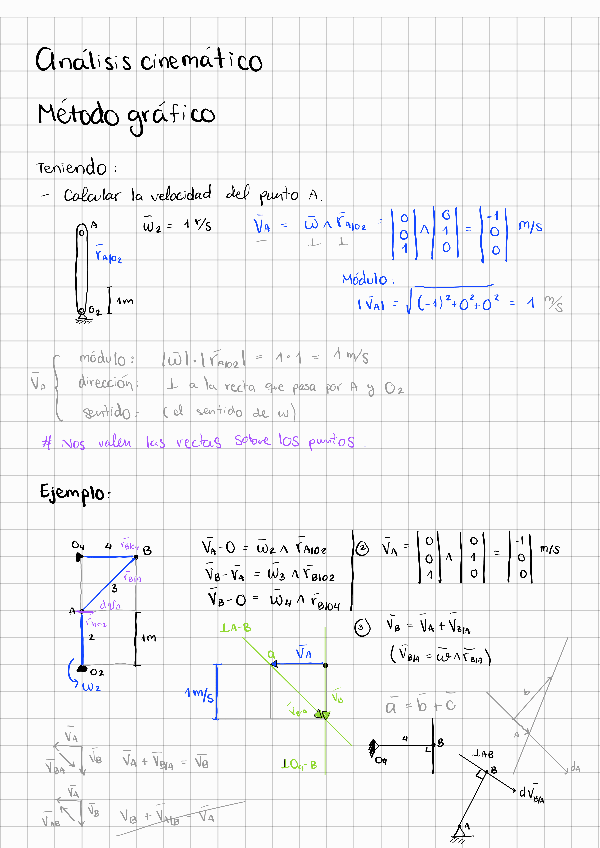 Análisis cinemático
Método gráfico
Teniendo:
- Calcular la velocidad del punto A.
A
r̄A/O2
1m
O2
ω̄2 = 1 r/s
V̄A = ω̄ ∧ r̄A/O2 = |0 0 1| ∧ |0 1 0| = |-1 0 0| m/s
Módulo:
|V̄A| = √((-1)²+0²+0²) = 1 m/s
módulo: |ω̄|·|r̄A/O2| = 1·1 = 1 m/s
V̄A { dirección: ⊥ a la recta que pasa por A y O2
sentido: (el sentido de ω)
# Nos valen las rectas sobre los puntos
Ejemplo:
O4 4 r̄B/O4 B
3 r̄B/A
A dVA
r̄A/O2
2 1m
O2
ω2
V̄A - 0 = ω̄2 ∧ r̄A/O2
V̄B - V̄A = ω̄3 ∧ r̄B/O2
V̄B - 0 = ω̄4 ∧ r̄B/O4
② V̄A = |0 0 1| ∧ |0 1 0| = |-1 0 0| m/s
③ V̄B = V̄A + V̄B/A
(V̄B/A = ω̄ ∧ r̄B/A)
⊥A-B
a V̄A
1 m/s
V̄B
V̄B/A
⊥O4-B
ā = b̄ + c̄
b
A
dA
4 B
O4
⊥AB
B
dV̄B/A
A
V̄A
V̄B/A V̄B V̄A + V̄B/A = V̄B
V̄A
V̄AB V̄B V̄B + V̄A/B = V̄A